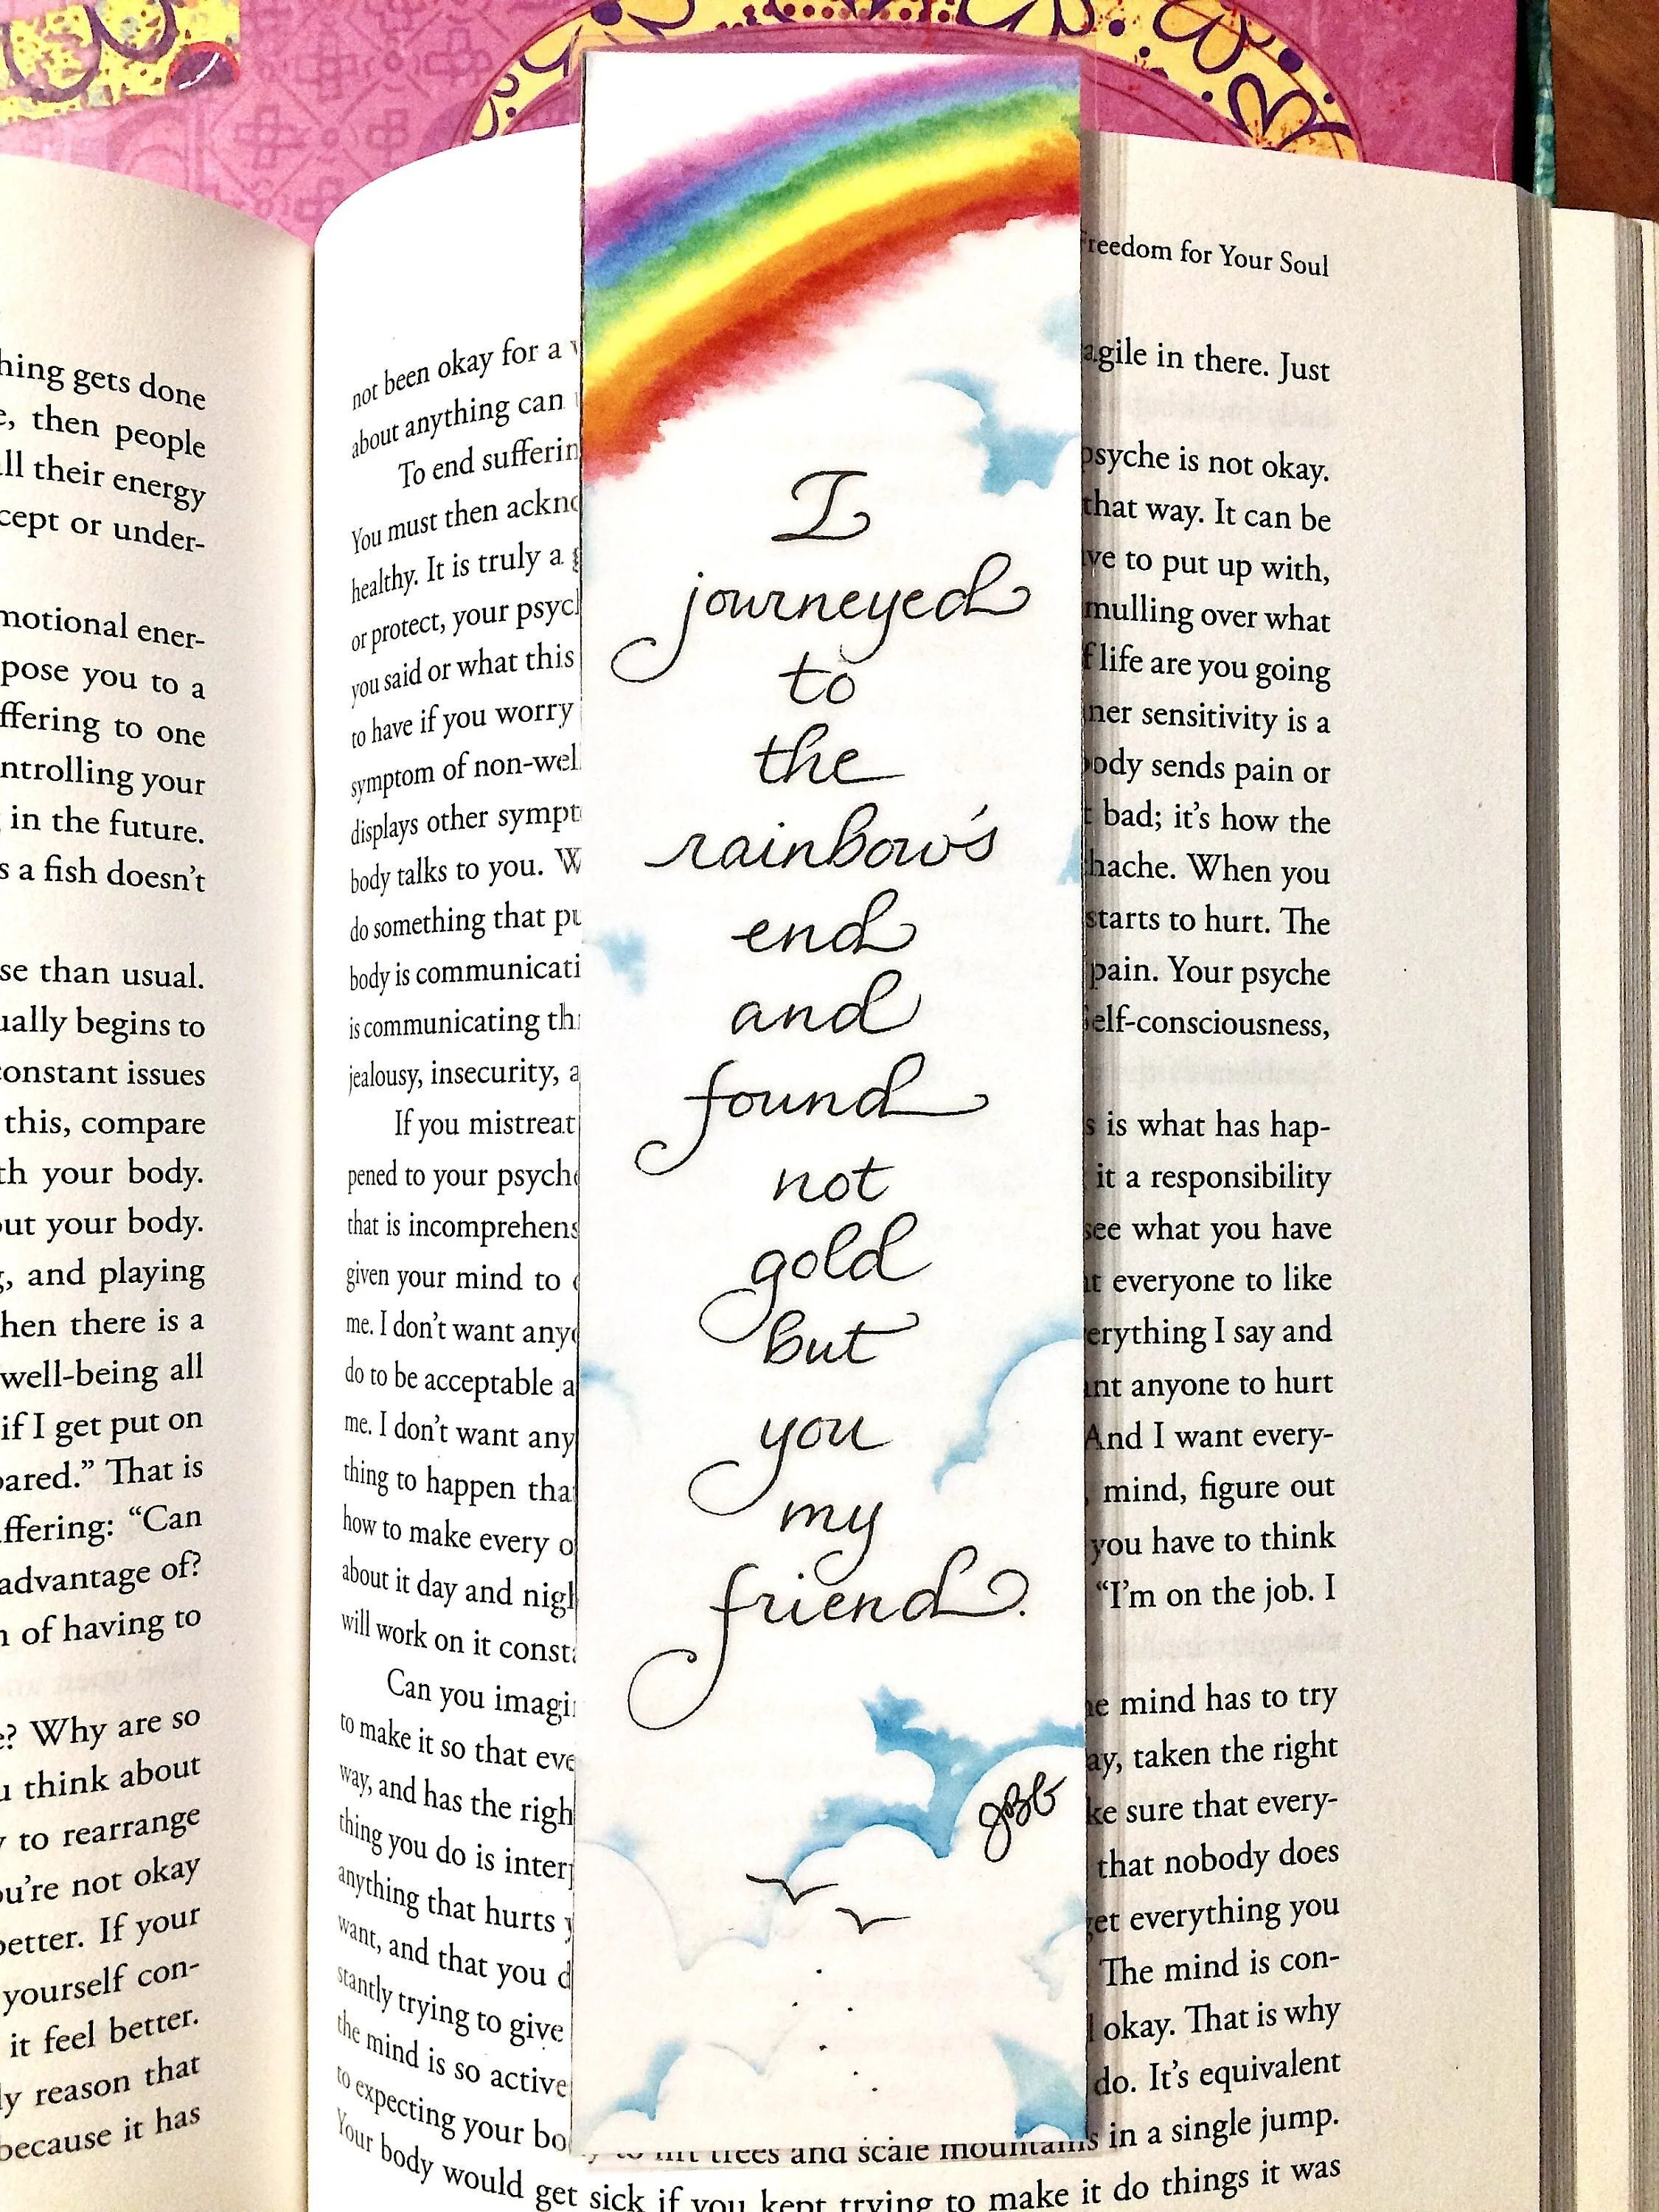 hing gets done
then people
ll their energy
cept or under-
motional ener-
pose you to a
ffering to one
ntrolling your
in the future.
s a fish doesn't
se than usual.
ually begins to
constant issues
this, compare
th your body.
out your body.
and playing
hen there is a
well-being all
if I get put on
pared." That is
ffering: "Can
advantage of?
n of having to
e? Why are so
u think about
y to rearrange
ou're not okay
better. If your
yourself con-
it feel better.
ly reason that
because it has
Freedom for Your Soul
not been okay for a
about anything can
To end sufferin
You must then ackno
healthy. It is truly a
or protect, your psycl
you said or what this
to have if you worry
symptom of non-wel
displays other sympt
body talks to you. W
do something that pu
body is communicati
is communicating thi
jealousy, insecurity, a
If you mistreat
pened to your psyche
that is incomprehens
given your mind to
me. I don't want anyo
do to be acceptable a
me. I don't want any
thing to happen tha
how to make every o
about it day and nigh
will work on it consta
Can you imagin
to make it so that eve
way, and has the righ
thing you do is interp
anything that hurts y
want, and that you d
stantly trying to give
the mind is so active
to expecting your bo
I
journeyed
to
the
rainbow's
end
and
found
not
gold
but
you
my
friend.
JBG
agile in there. Just
psyche is not okay.
that way. It can be
ve to put up with,
mulling over what
f life are you going
ner sensitivity is a
body sends pain or
t bad; it's how the
hache. When you
starts to hurt. The
pain. Your psyche
Self-consciousness,
s is what has hap-
it a responsibility
see what you have
nt everyone to like
erything I say and
ant anyone to hurt
And I want every-
, mind, figure out
you have to think
"I'm on the job. I
he mind has to try
ay, taken the right
ke sure that every-
that nobody does
get everything you
The mind is con-
okay. That is why
do. It's equivalent
trees and scale mountains in a single jump.
Your body would get sick if you kept trying to make it do things it was